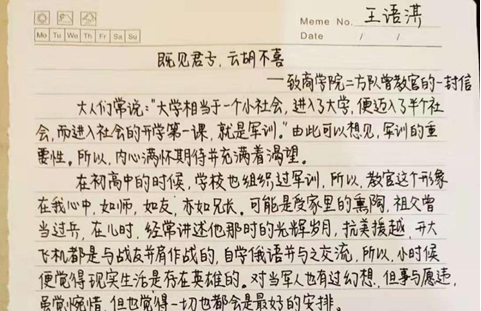 Meme No. 王语淇
Mo Tu We Th Fr Sa Su
Date / /
既见君子,云胡不喜
——致商学院二方队曾教官的一封信
大人们常说:“大学相当于一个小社会,进入了大学,便迈入了半个社
会,而进入社会的开学第一课,就是军训。”由此可以想见,军训的重
要性。所以,内心满怀期待并充满着渴望。
在初高中的时候,学校也组织过军训,所以,教官这个形象
在我心中,如师,如友,亦如兄长。可能是受家里的熏陶,祖父曾
当过兵,在儿时,经常讲述他那时的光辉岁月,抗美援越,开大
飞机都是与战友并肩作战的,自学俄语并与之交流,所以,小时候
便觉得现实生活是存在英雄的。对当军人也有过幻想,但事与愿违,
虽觉惋惜,但也觉得一切也都会是最好的安排。